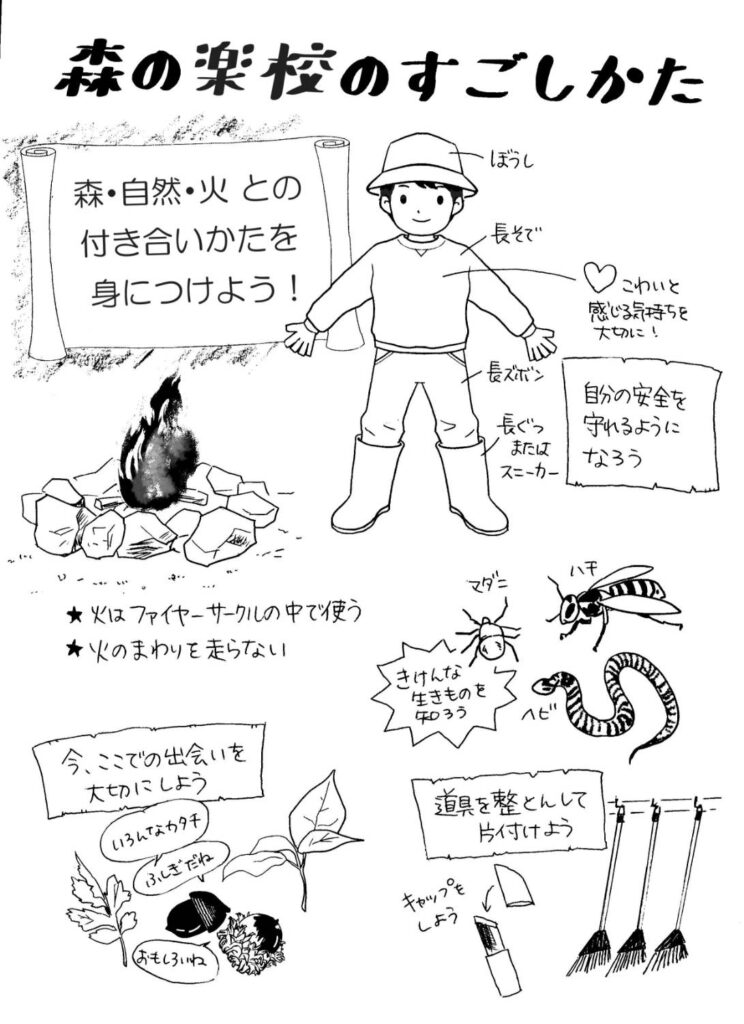 森の楽校のすごしかた
森・自然・火 との
付き合いかたを
身につけよう！
ぼうし
長そで
♡ こわいと
感じる気持ちを
大切に！
長ズボン
長ぐつ
または
スニーカー
自分の安全を
守れるように
なろう
★ 火はファイヤーサークルの中で使う
★ 火のまわりを走らない
マダニ
ハチ
ヘビ
きけんな
生きものを
知ろう
今、ここでの出会いを
大切にしよう
いろんなカタチ
ふしぎだね
おもしろいね
道具を整とんして
片付けよう
キャップを
しよう